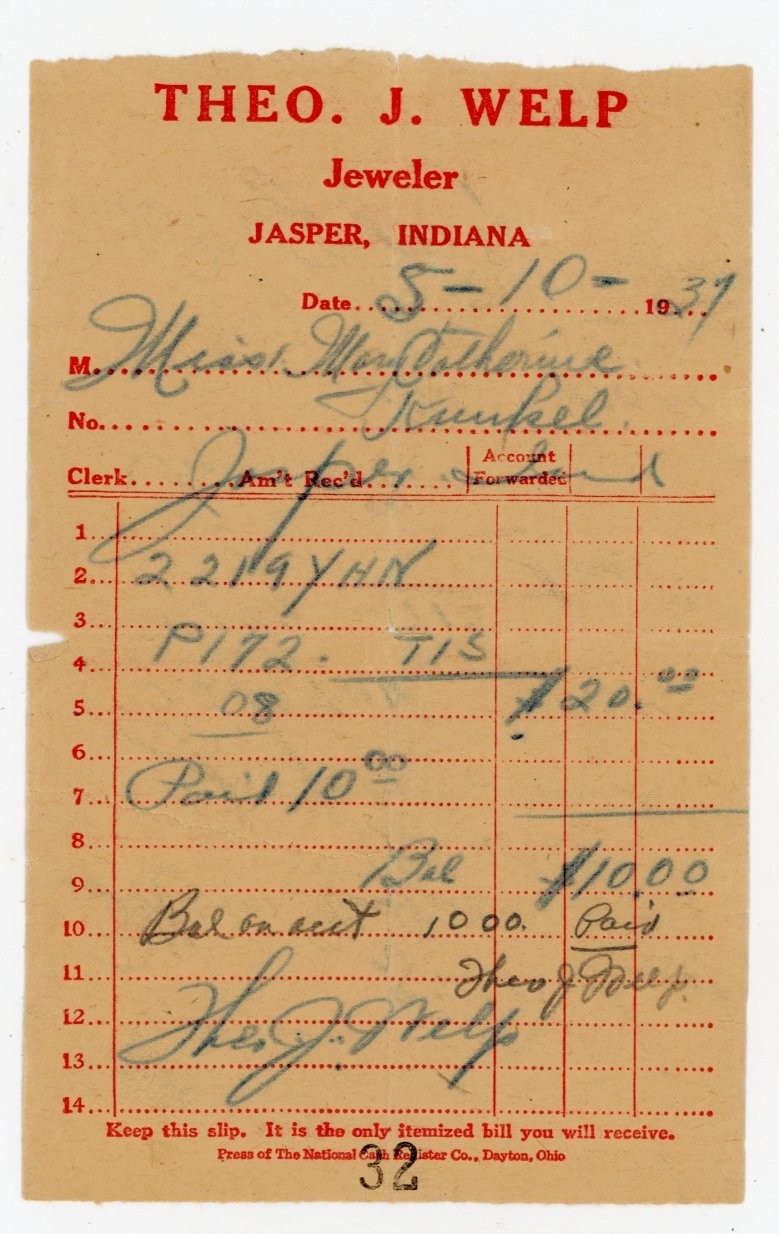 THEO. J. WELP
Jeweler
JASPER, INDIANA
Date 5-10- 1937
M. Miss. May Catherine
No. Kunkel.
Clerk Am't Rec'd Account Forwarded
Jasper Ind
1
2 2219 YHN
3
4 P172. T15
5 08 $20.00
6
7 Paid 10 00
8
9 Bal $10.00
10 Bal on acct 10 00. Paid
11 Theo J Welp.
12 Theo. J. Welp
13
14
Keep this slip. It is the only itemized bill you will receive.
Press of The National Cash Register Co., Dayton, Ohio
32